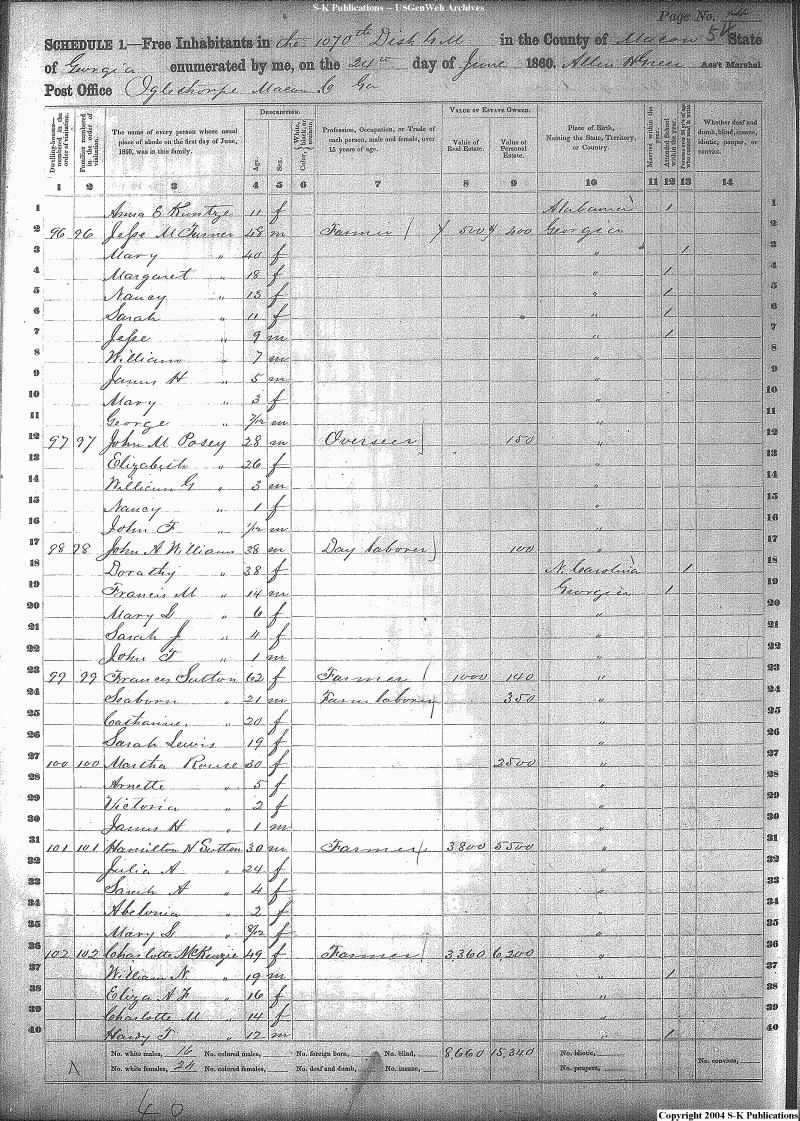 S-K Publications – USGenWeb Archives
Page No. 54
SCHEDULE 1.—Free Inhabitants in the 1070th Dist G M in the County of Macon State
of Georgia enumerated by me, on the 24th day of June 1860. Allen H Greer Ass't Marshal.
Post Office Oglethorpe Macon Co Ga
Dwelling-houses—numbered in the order of visitation. Families numbered in the order of visitation. The name of every person whose usual place of abode on the first day of June, 1860, was in this family. DESCRIPTION. Age. Sex. Color, White, black, or mulatto. Profession, Occupation, or Trade of each person, male and female, over 15 years of age. VALUE OF ESTATE OWNED. Value of Real Estate. Value of Personal Estate. Place of Birth, Naming the State, Territory, or Country. Married within the year. Attended School within the year. Persons over 20 y'rs of age who cannot read & write. Whether deaf and dumb, blind, insane, idiotic, pauper, or convict.
1 2 3 4 5 6 7 8 9 10 11 12 13 14
1 Anna E Kuntze 11 f Alabama 1 1
2 96 96 Jesse M Turner 48 m Farmer 500 400 Georgia 2
3 Mary " 40 f " 1 3
4 Margaret " 18 f " 1 4
5 Nancy " 13 f " 1 5
6 Sarah " 11 f " 1 6
7 Jesse " 9 m " 1 7
8 William " 7 m " 8
9 James H " 5 m " 9
10 Mary " 3 f " 10
11 George " 7/12 m " 11
12 97 97 John M Posey 28 m Overseer 150 " 12
13 Elizabeth " 26 f " 13
14 William G " 3 m " 14
15 Nancy " 1 f " 15
16 John F " 1/12 m " 16
17 98 98 John A Williams 38 m Day laborer 100 " 17
18 Dorathy " 38 f N. Carolina 1 18
19 Francis M " 14 m Georgia 1 19
20 Mary " 6 f " 20
21 Sarah J " 4 f " 21
22 John T " 1 m " 22
23 99 99 Frances Sutton 62 f Farmer 1000 140 " 23
24 Seaborn " 21 m Farm laborer 350 " 24
25 Catharine " 20 f " 25
26 Sarah Lewis 19 f " 26
27 100 100 Martha Rouse 30 f 2500 " 27
28 Arnette " 5 f " 28
29 Victoria " 2 f " 29
30 James H " 1 m " 30
31 101 101 Hamilton N Sutton 30 m Farmer 3800 5500 " 31
32 Julia A " 24 f " 32
33 Sarah A " 4 f " 33
34 Abelonia " 2 f " 34
35 Mary " f " 35
36 102 102 Charlotte McKenzie 49 f Farmer 3,360 6,200 " 36
37 William N. " 19 m " 1 37
38 Eliza A F " 16 f " 38
39 Charlotte M " 14 f " 39
40 Hardy T " 12 m " 1 40
No. white males, 16 No. colored males, No. foreign born, No. blind, 8,660 15,340 No. idiotic,
No. white females, 24 No. colored females, No. deaf and dumb, No. insane, No. paupers, No. convicts,
40
Copyright 2004 S-K Publications